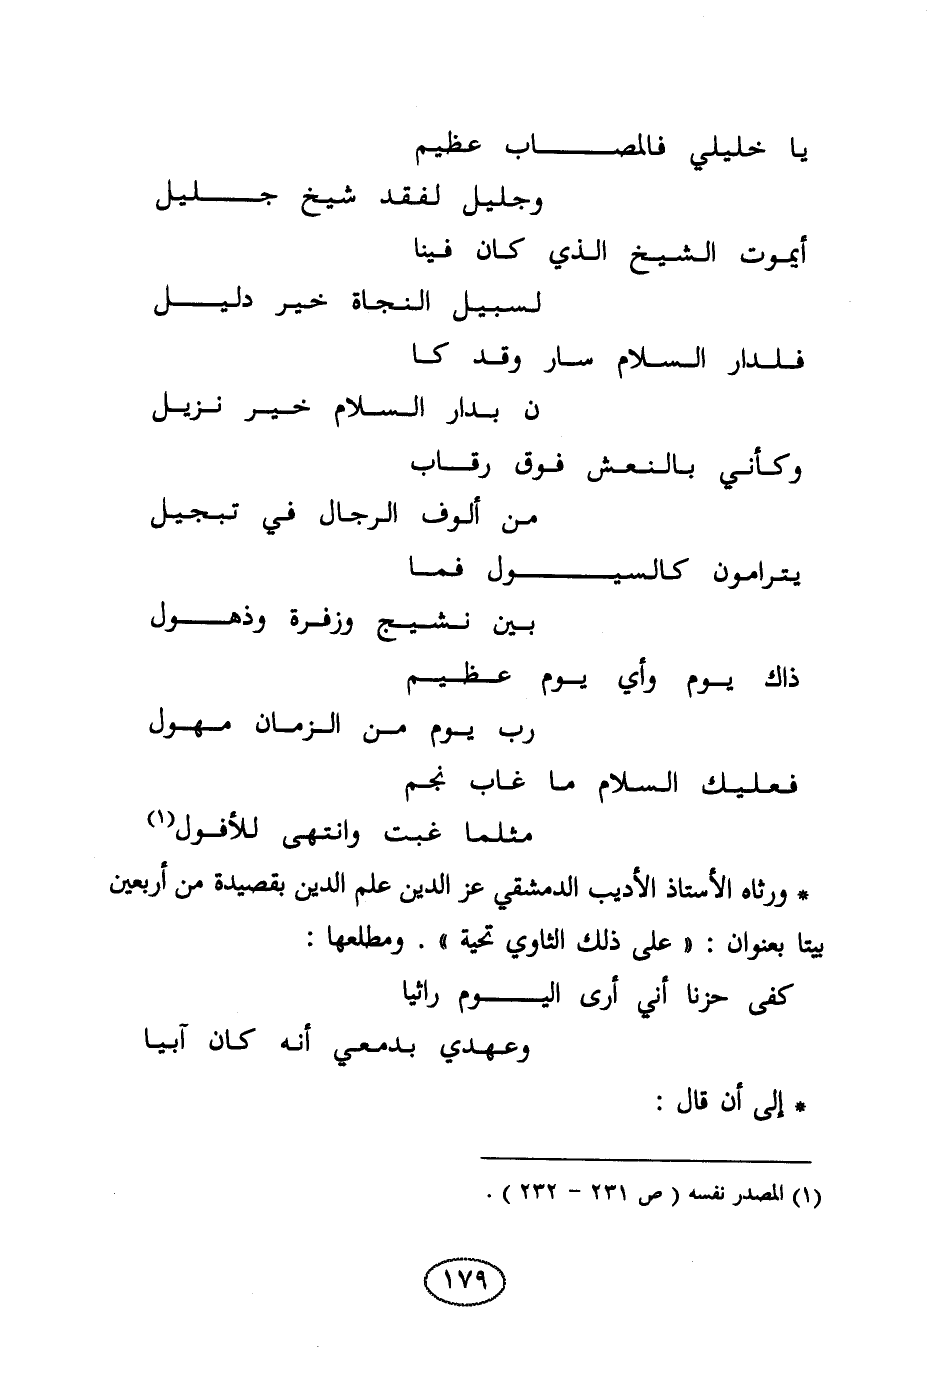 يا خليلي فالمصاب عظيم
وجليل لفقد شيخ جليل
أيموت الشيخ الذي كان فينا
لسبيل النجاة خير دليل
فلدار السلام سار وقد كا
ن بدار السلام خير نزيل
وكأني بالنعش فوق رقاب
من ألوف الرجال في تبجيل
يترامون كالسيول فما
بين نشيج وزفرة وذهول
ذاك يوم وأي يوم عظيم
رب يوم من الزمان مهول
فعليك السلام ما غاب نجم
مثلما غبت وانتهى للأفول(١)
* ورثاه الأستاذ الأديب الدمشقي عز الدين علم الدين بقصيدة من أربعين
بيتا بعنوان : « على ذلك الثاوي تحية » . ومطلعها :
كفى حزنا أني أرى اليوم راثيا
وعهدي بدمعي أنه كان آبيا
* إلى أن قال :
(١) المصدر نفسه ( ص ٢٣١ - ٢٣٢ ) .
١٧٩